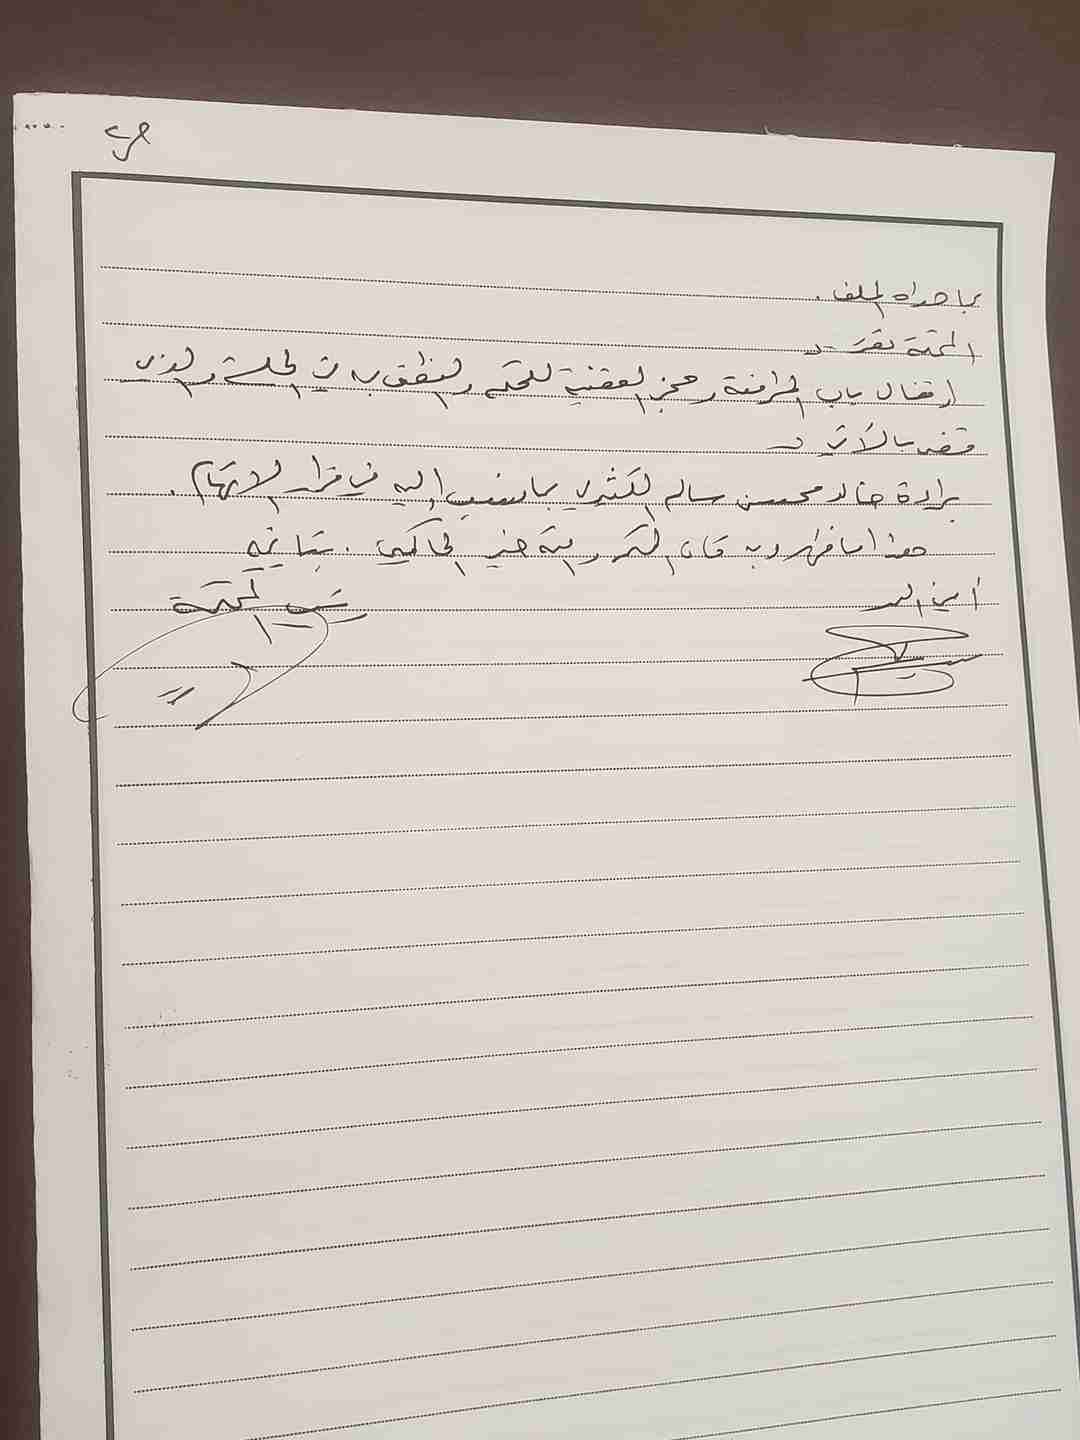 بما حواه الملف .
المحكمة تقرر :-
إقفال باب المرافعة وحجز القضية للحكم والنطق به في الجلسة والذي
قضى بالآتي :-
براءة خالد محسن سالم الكثيري بما نسب إليه في قرار الاتهام .
هذا ما ظهر وبه كان الحكم والله خير الحاكمين .
أمين السر
رئيس المحكمة